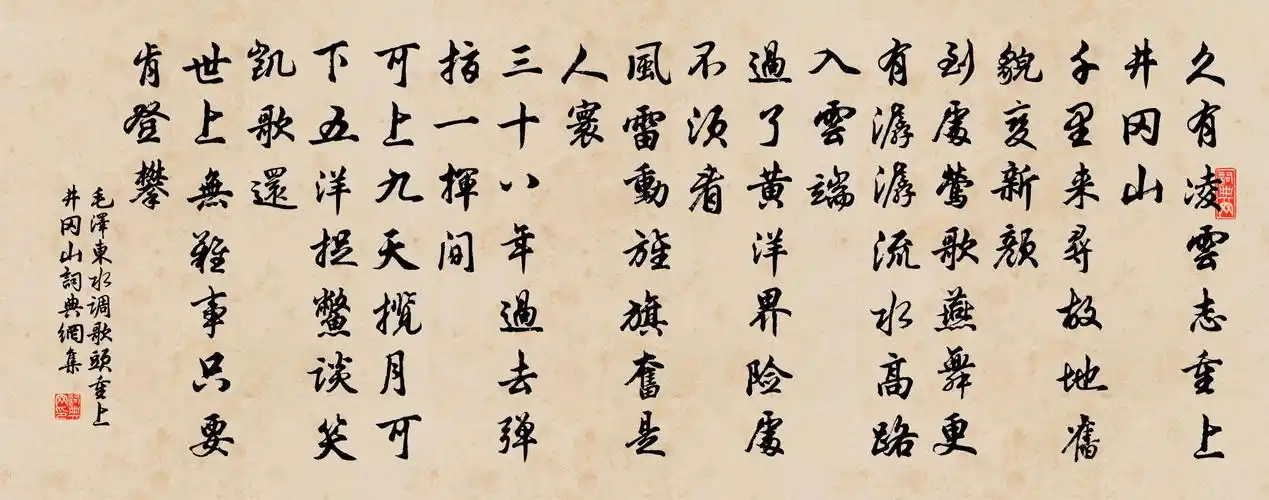 久有凌雲志重上
井冈山
千里来尋故地舊
貌变新颜
到處鶯歌燕舞更
有潺潺流水高路
入雲端
過了黄洋界险處
不须看
風雷動旌旗奮是
人寰
三十八年過去弹
指一揮间
可上九天揽月可
下五洋捉鳖谈笑
凯歌還
世上無难事只要
肯登攀
毛澤東水调歌頭重上
井冈山詞典網集
詞典网